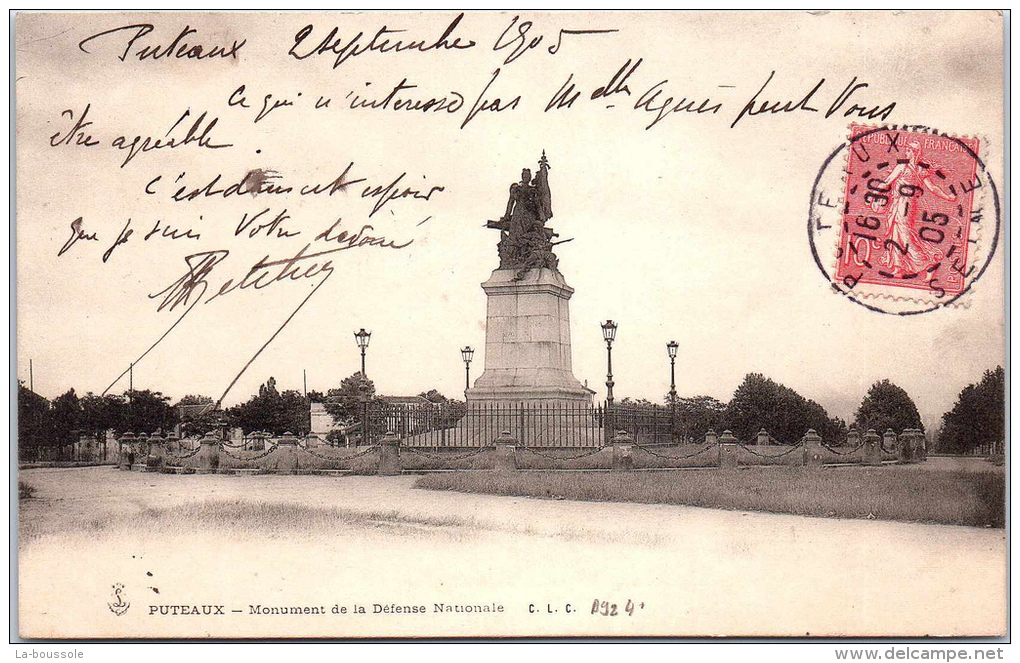 Puteaux 2 septembre 1905
Ce qui n'intéresse pas Melle Agnès peut Vous
être agréable.
C'est dans cet espoir
que je suis Votre dévoué
REPUBLIQUE FRANÇAISE
PUTEAUX
16 30
2 - 9
05
SEINE
PUTEAUX — Monument de la Défense Nationale C. L. C.
La-boussole
www.delcampe.net